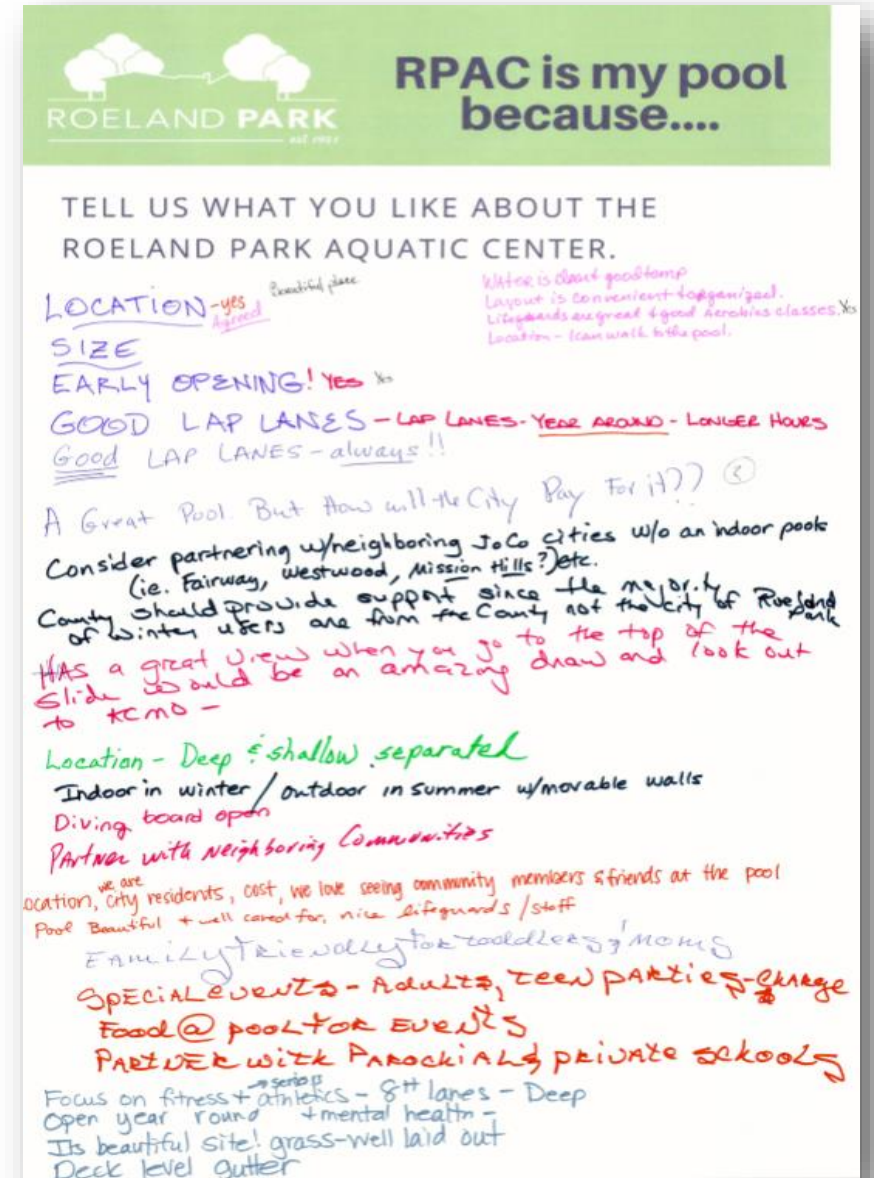 ROELAND PARK
est 1951
RPAC is my pool
because....
TELL US WHAT YOU LIKE ABOUT THE
ROELAND PARK AQUATIC CENTER.
LOCATION -yes Beautiful place
Agreed
Water is clean + good temp
Layout is convenient + organized.
Lifeguards are great + good Aerobics classes. Yes
Location - I can walk to the pool.
SIZE
EARLY OPENING! YES Yes
GOOD LAP LANES - LAP LANES - YEAR AROUND - LONGER HOURS
Good LAP LANES - always!!
A Great Pool. But How will the City Pay For it??
Consider partnering w/neighboring JoCo cities w/o an indoor pool
(ie. Fairway, Westwood, Mission Hills?) etc.
County should provide support since the majority
of winter users are from the County not the city of Roeland Park
HAS a great view when you go to the top of the
slide would be an amazing draw and look out
to KCMO -
Location - Deep & shallow separated
Indoor in winter / outdoor in summer w/movable walls
Diving board open
Partner with Neighboring Communities
ocation, we are city residents, cost, we love seeing community members & friends at the pool
Pool Beautiful + well cared for, nice lifeguards / staff
FAMILY FRIENDLY FOR TODDLERS & MOMS
SPECIAL EVENTS - ADULTS, TEEN PARTIES - CHARGE $
Food @ POOL FOR EVENTS
PARTNER WITH PAROCHIAL & PRIVATE SCHOOLS
Focus on fitness + athletics - 8 lanes - Deep
Open year round + mental health -
Its beautiful site! grass - well laid out
Deck level gutter